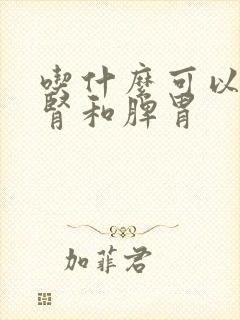 喫什麼可以
腎和脾胃
加菲君